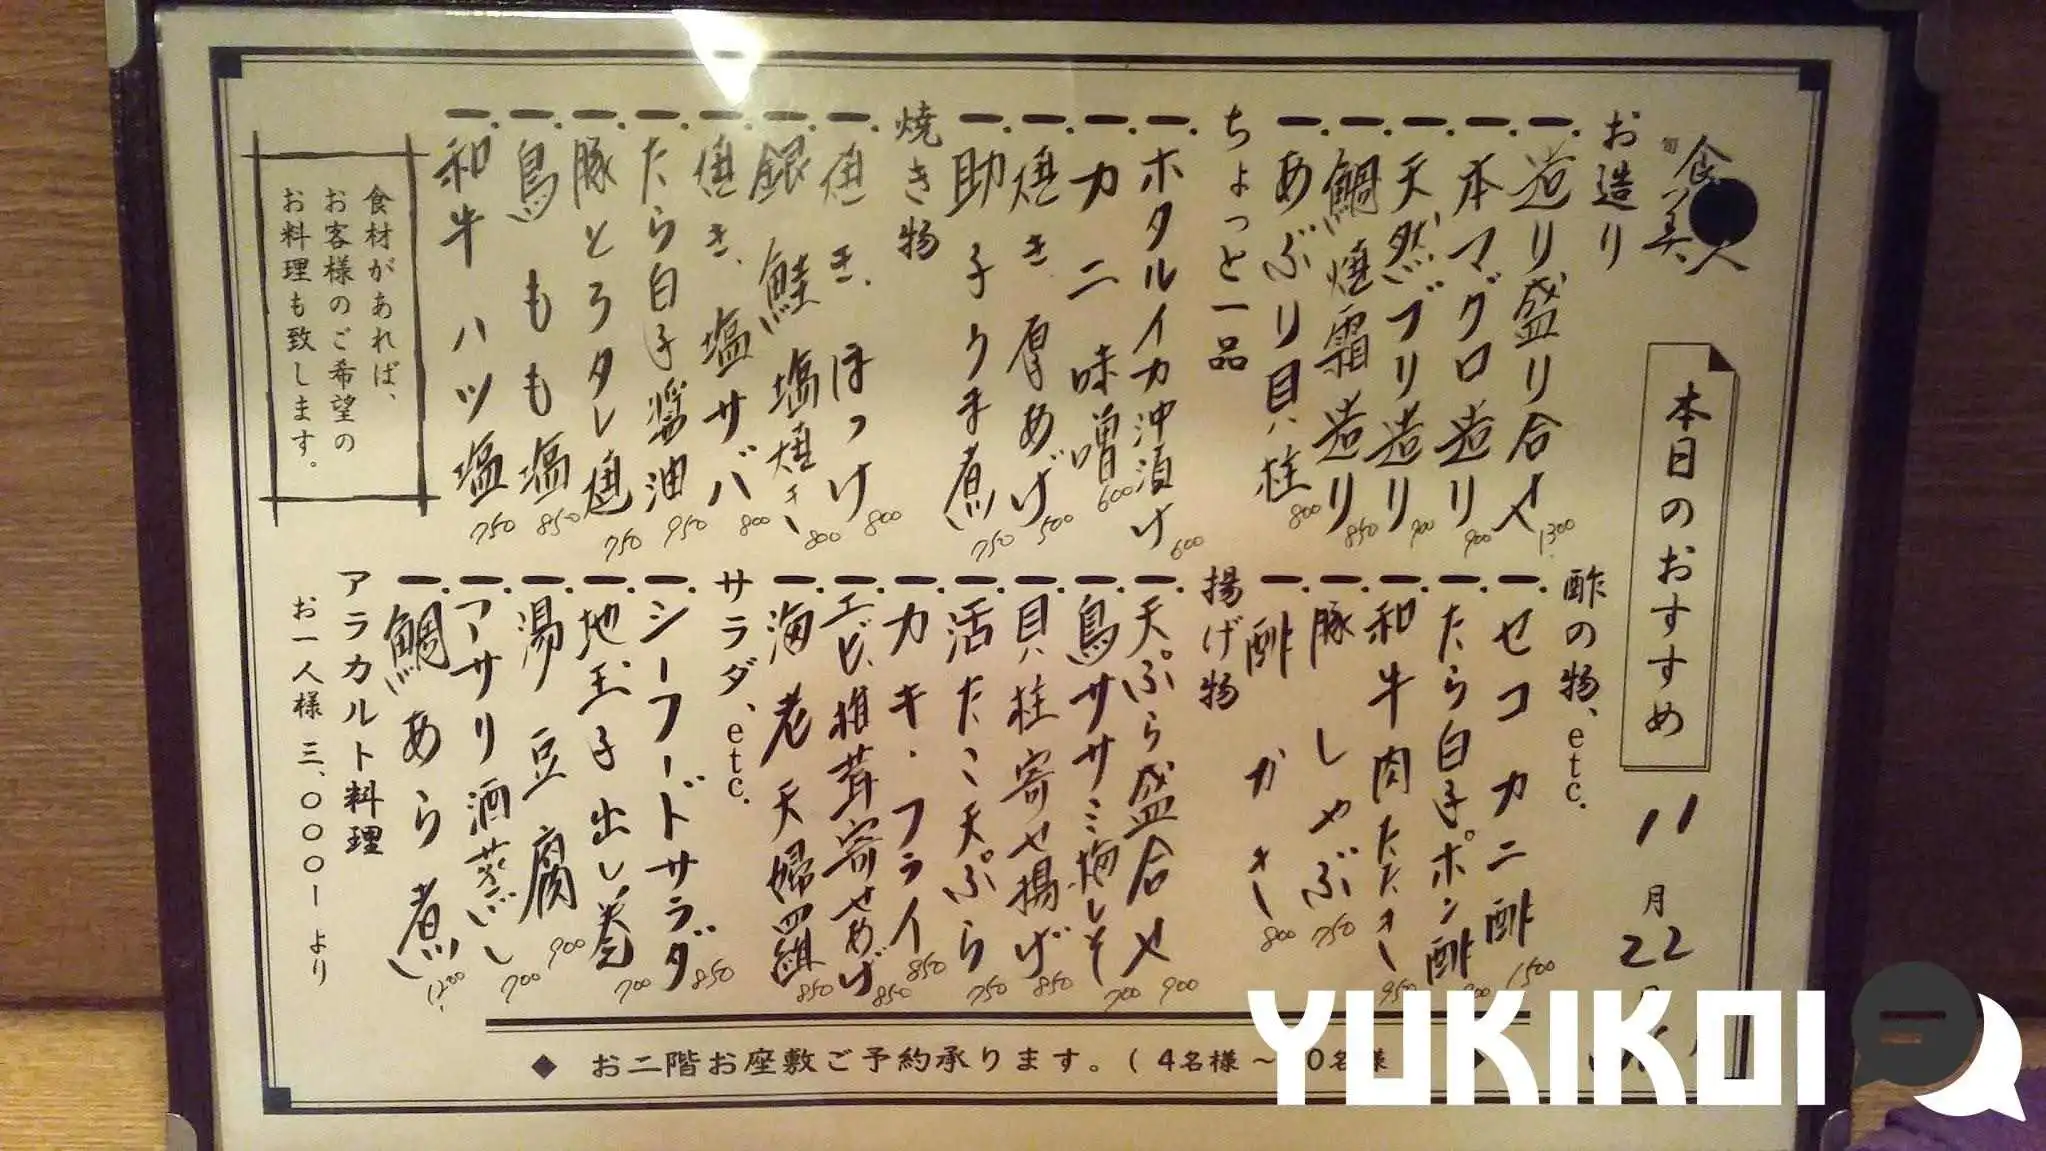 旬
食美人
本日のおすすめ
11月22
お造り
一.造り盛り合メ 1300
一.本マグロ造り 900
一.天然ブリ造り 900
一.鯛焼霜造り 850
一.あぶり貝柱 800
ちょっと一品
一.ホタルイカ沖漬け 600
一.カニ味噌 600
一.焼き厚あげ 500
一.助子うま煮 750
焼き物
一.焼き.ほっけ 800
一.銀鮭塩焼き 800
一.焼き.塩サバ 800
一.たら白子醤油 950
一.豚とろタレ焼 750
一.鳥もも塩 850
一.和牛ハツ塩 750
食材があれば、
お客様のご希望の
お料理も致します.
酢の物、etc.
一.セコカニ酢 1500
一.たら白子ポン酢
一.和牛肉たたき 950
一.豚しゃぶ 750
一.酢がき 800
揚げ物
一.天ぷら盛合メ 900
一.鳥ササミ梅しそ 700
一.貝柱寄せ揚げ 850
一.活たこ天ぷら 750
一.カキ・フライ 850
一.エビ椎茸寄せあげ 850
一.海老天婦羅 850
サラダ、etc.
一.シーフードサラダ 850
一.地玉子出し巻 700
一.湯豆腐 900
一.アサリ酒蒸し 700
一.鯛あら煮 1200
アラカルト料理
お一人様 三、〇〇〇ー より
◆ お二階お座敷ご予約承ります。( 4名様 〜 0名様
YUKIKOI